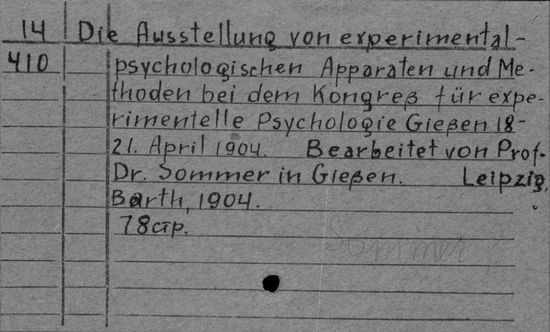 14 Die Ausstellung von experimental-
410 psychologischen Apparaten und Me-
thoden bei dem Kongreß für expe-
rimentelle Psychologie Gießen 18-
21. April 1904. Bearbeitet von Prof.
Dr. Sommer in Gießen. Leipzig,
Barth, 1904.
78 стр.
Sommer